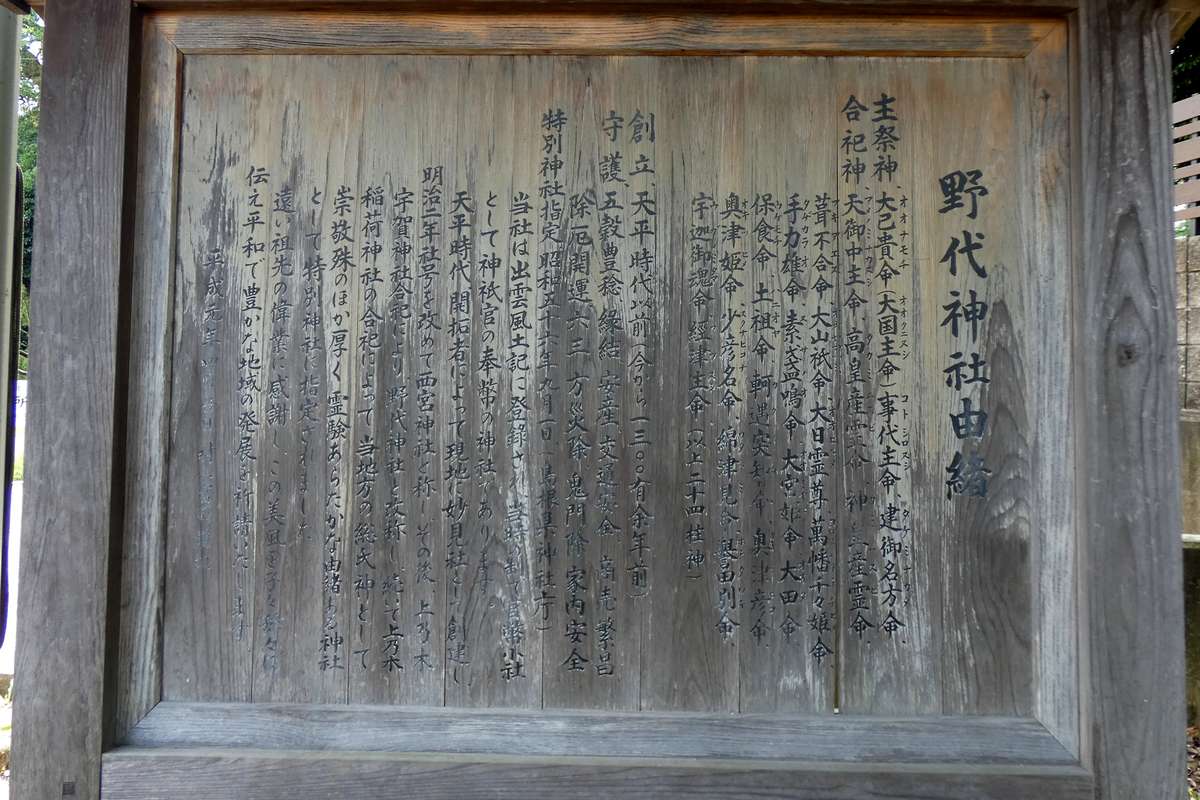 野代神社由緒
主祭神、大己貴命(大国主命)事代主命、建御名方命、
合祀神、天御中主命、高皇産霊命、神皇産霊命、
葺不合命、大山祇命、大日霊尊、萬幡千々姫命、
手力雄命、素盞鳴命、大宮姫命、大田命、
保食命、土祖命、軻遇突智命、奥津彦命、
奥津姫命、少彦名命、綿津見命、誉田別命、
宇迦御魂命、經津主命(以上二十四柱神)
創立、天平時代以前(今から一三〇〇有余年前)
守護、五穀豊稔、縁結、安産、交通安全、商売繁昌
除厄開運、六三、方災除、鬼門除、家内安全
特別神社指定、昭和五十六年九月一日(島根県神社庁)
当社は出雲風土記に登録され、当時の制で官幣小社
として神祇官の奉幣の神社であります。
天平時代、開拓者によって現地に妙見社として創建し、
明治二年社号を改めて西宮神社と称し、その後、上乃木
宇賀神社合祀により、野代神社と改称し、続いて上乃木
稲荷神社の合祀によって当地方の総氏神として
崇敬殊のほか厚く、霊験あらたかな由緒ある神社
として特別神社に指定されました。
遠い祖先の偉業に感謝し、この美風を子々孫々に
伝え平和で豊かな地域の発展を祈請いたします
平成元年